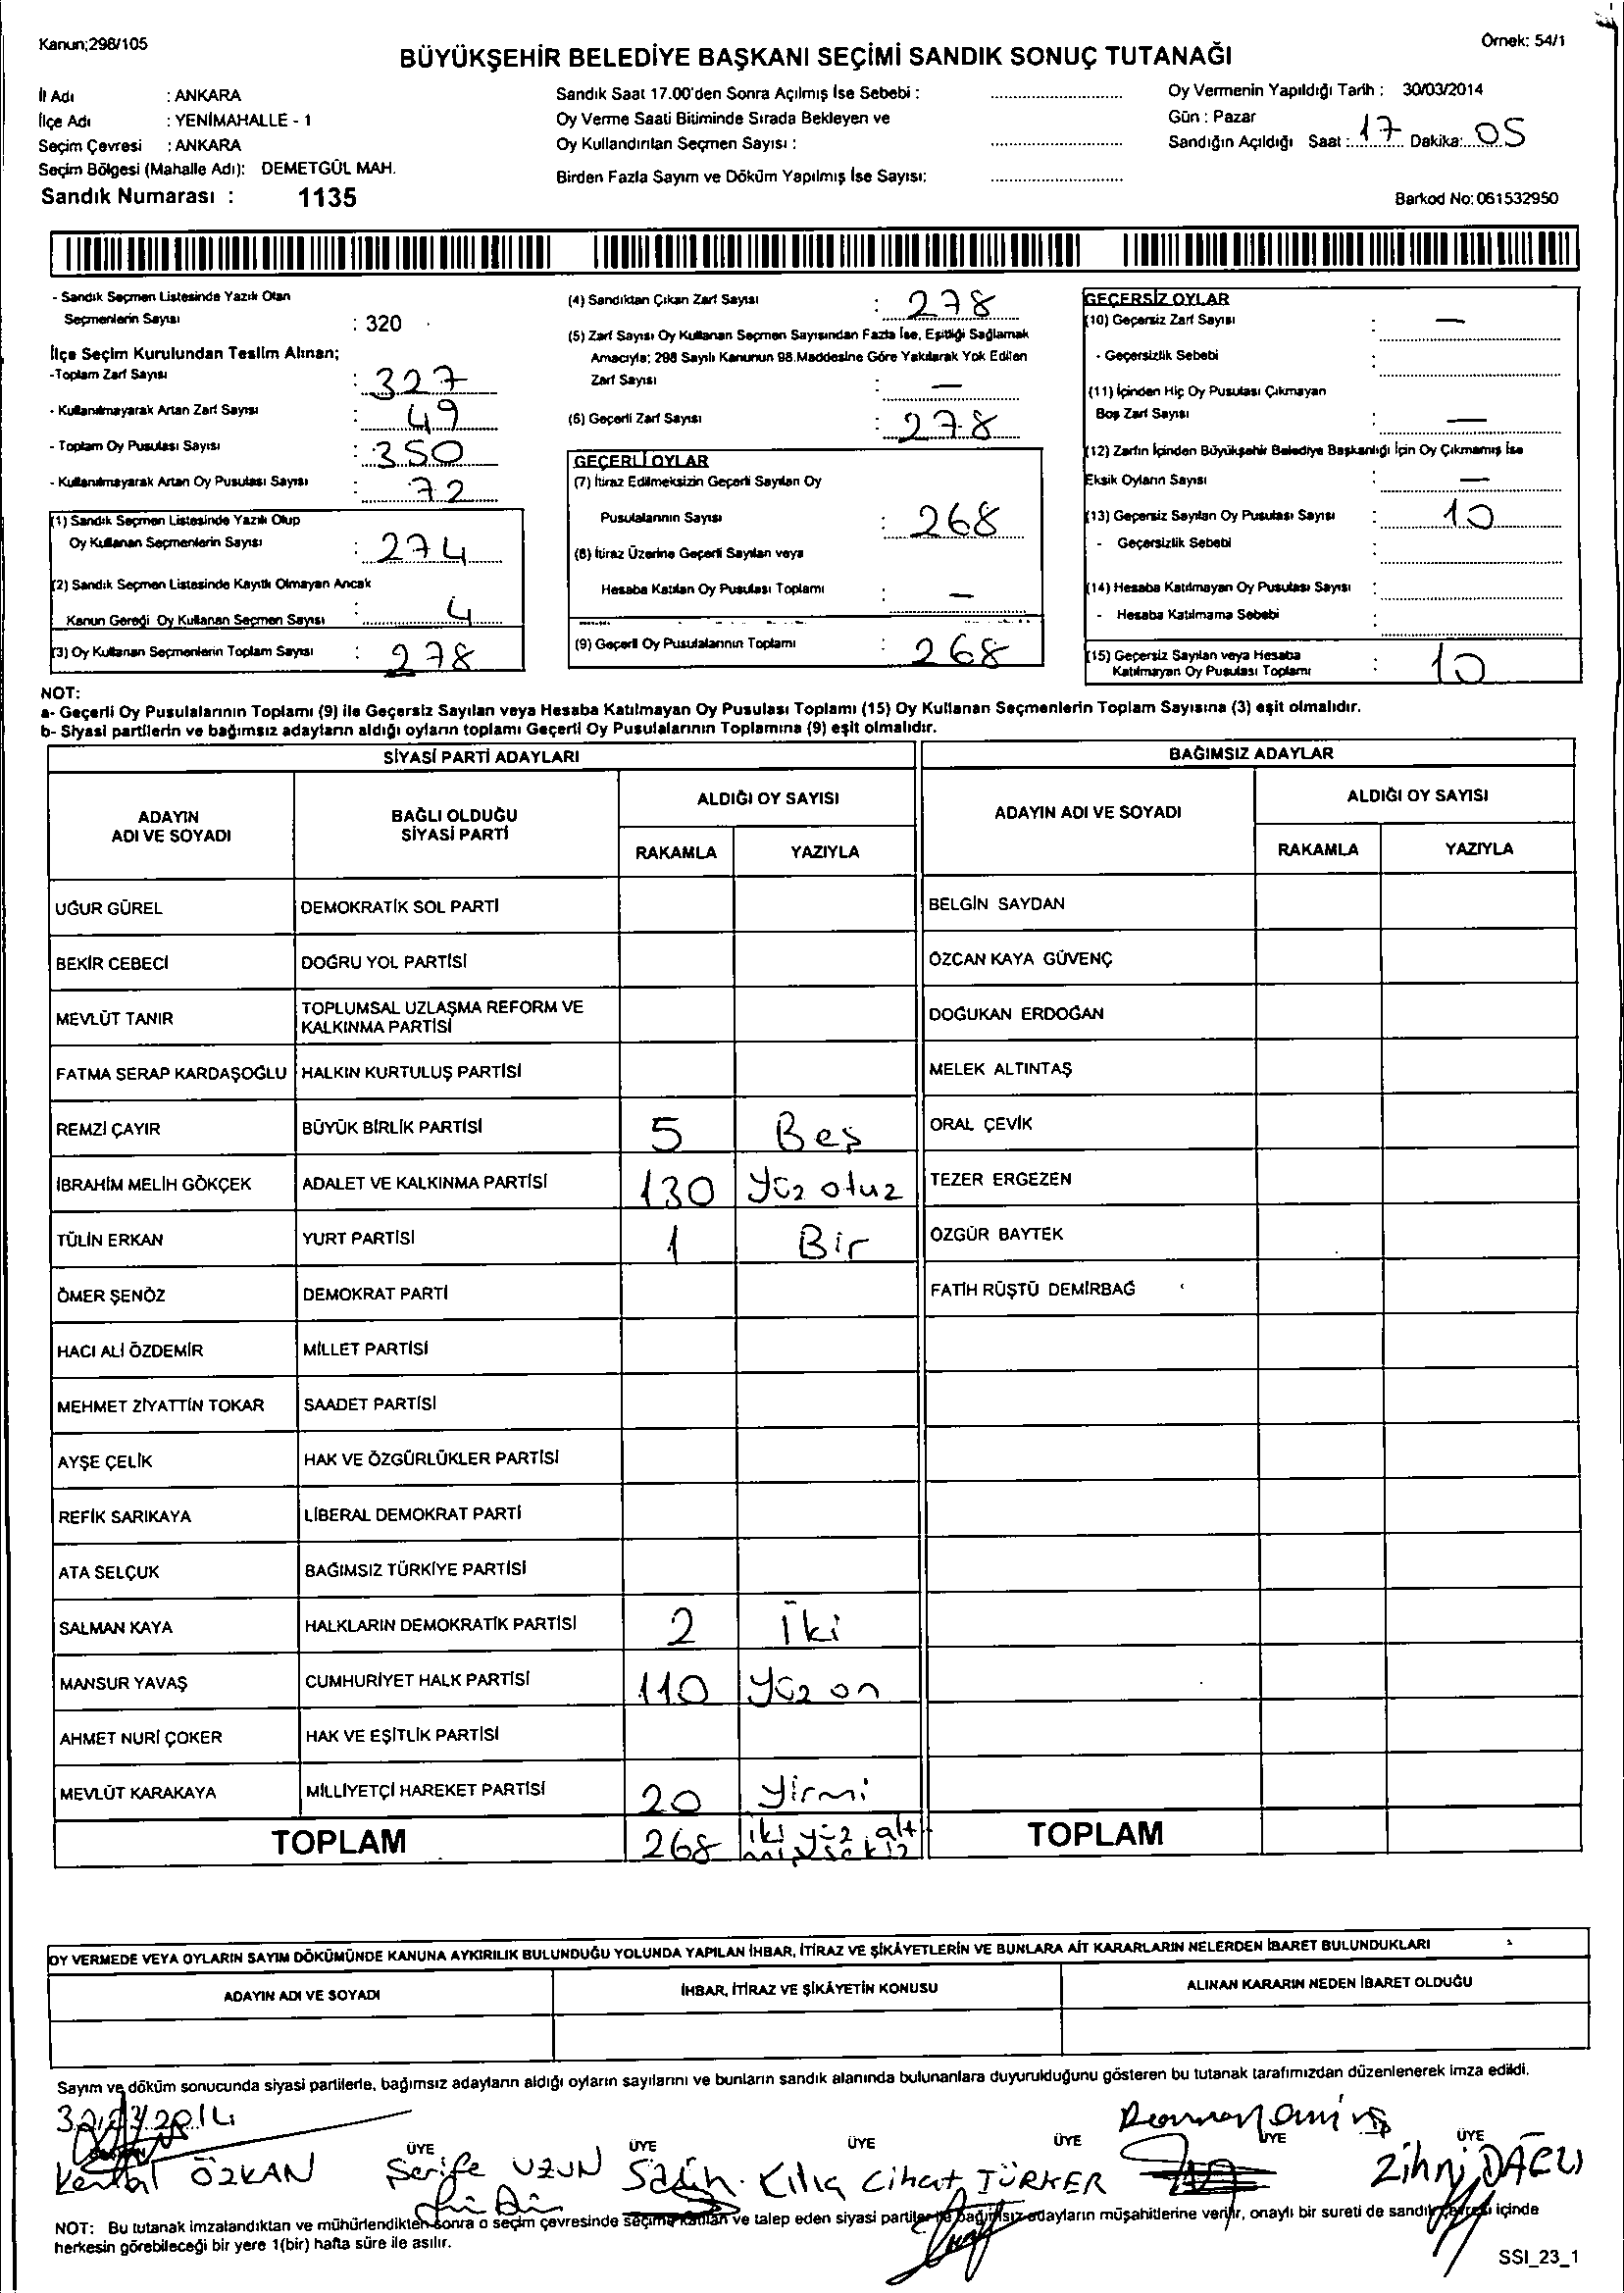 Kanun;298/105
Örnek: 54/1
BÜYÜKŞEHİR BELEDİYE BAŞKANI SEÇİMİ SANDIK SONUÇ TUTANAĞI
İl Adı : ANKARA
İlçe Adı : YENİMAHALLE - 1
Seçim Çevresi : ANKARA
Seçim Bölgesi (Mahalle Adı): DEMETGÜL MAH.
Sandık Numarası : 1135
Sandık Saat 17.00'den Sonra Açılmış İse Sebebi :
Oy Verme Saati Bitiminde Sırada Bekleyen ve
Oy Kullandırılan Seçmen Sayısı :
Birden Fazla Sayım ve Döküm Yapılmış İse Sayısı:
Oy Vermenin Yapıldığı Tarih : 30/03/2014
Gün : Pazar
Sandığın Açıldığı Saat : 17 Dakika: 05
Barkod No: 061532950
- Sandık Seçmen Listesinde Yazılı Olan
Seçmenlerin Sayısı : 320
İlçe Seçim Kurulundan Teslim Alınan;
-Toplam Zarf Sayısı : 327
- Kullanılmayarak Artan Zarf Sayısı : 49
- Toplam Oy Pusulası Sayısı : 350
- Kullanılmayarak Artan Oy Pusulası Sayısı : 72
(1) Sandık Seçmen Listesinde Yazılı Olup
Oy Kullanan Seçmenlerin Sayısı : 274
(2) Sandık Seçmen Listesinde Kayıtlı Olmayan Ancak
Kanun Gereği Oy Kullanan Seçmen Sayısı : 4
(3) Oy Kullanan Seçmenlerin Toplam Sayısı : 278
(4) Sandıktan Çıkan Zarf Sayısı : 278
(5) Zarf Sayısı Oy Kullanan Seçmen Sayısından Fazla İse, Eşitliği Sağlamak
Amacıyla; 298 Sayılı Kanunun 98.Maddesine Göre Yakılarak Yok Edilen
Zarf Sayısı : —
(6) Geçerli Zarf Sayısı : 278
GEÇERLİ OYLAR
(7) İtiraz Edilmeksizin Geçerli Sayılan Oy
Pusulalarının Sayısı : 268
(8) İtiraz Üzerine Geçerli Sayılan veya
Hesaba Katılan Oy Pusulası Toplamı : —
(9) Geçerli Oy Pusulalarının Toplamı : 268
GEÇERSİZ OYLAR
(10) Geçersiz Zarf Sayısı : —
- Geçersizlik Sebebi :
(11) İçinden Hiç Oy Pusulası Çıkmayan
Boş Zarf Sayısı : —
(12) Zarfın İçinden Büyükşehir Belediye Başkanlığı İçin Oy Çıkmamış İse
Eksik Oyların Sayısı : —
(13) Geçersiz Sayılan Oy Pusulası Sayısı : 10
- Geçersizlik Sebebi :
(14) Hesaba Katılmayan Oy Pusulası Sayısı :
- Hesaba Katılmama Sebebi :
(15) Geçersiz Sayılan veya Hesaba
Katılmayan Oy Pusulası Toplamı : 10
NOT:
a- Geçerli Oy Pusulalarının Toplamı (9) ile Geçersiz Sayılan veya Hesaba Katılmayan Oy Pusulası Toplamı (15) Oy Kullanan Seçmenlerin Toplam Sayısına (3) eşit olmalıdır.
b- Siyasi partilerin ve bağımsız adayların aldığı oyların toplamı Geçerli Oy Pusulalarının Toplamına (9) eşit olmalıdır.
SİYASİ PARTİ ADAYLARI
ADAYIN ADI VE SOYADI
BAĞLI OLDUĞU SİYASİ PARTİ
ALDIĞI OY SAYISI
RAKAMLA YAZIYLA
UĞUR GÜREL DEMOKRATİK SOL PARTİ
BEKİR CEBECİ DOĞRU YOL PARTİSİ
MEVLÜT TANIR TOPLUMSAL UZLAŞMA REFORM VE
KALKINMA PARTİSİ
FATMA SERAP KARDAŞOĞLU HALKIN KURTULUŞ PARTİSİ
REMZİ ÇAYIR BÜYÜK BİRLİK PARTİSİ 5 Beş
İBRAHİM MELİH GÖKÇEK ADALET VE KALKINMA PARTİSİ 130 Yüz otuz
TÜLİN ERKAN YURT PARTİSİ 1 Bir
ÖMER ŞENÖZ DEMOKRAT PARTİ
HACI ALİ ÖZDEMİR MİLLET PARTİSİ
MEHMET ZİYATTİN TOKAR SAADET PARTİSİ
AYŞE ÇELİK HAK VE ÖZGÜRLÜKLER PARTİSİ
REFİK SARIKAYA LİBERAL DEMOKRAT PARTİ
ATA SELÇUK BAĞIMSIZ TÜRKİYE PARTİSİ
SALMAN KAYA HALKLARIN DEMOKRATİK PARTİSİ 2 İki
MANSUR YAVAŞ CUMHURİYET HALK PARTİSİ 110 Yüz on
AHMET NURİ ÇOKER HAK VE EŞİTLİK PARTİSİ
MEVLÜT KARAKAYA MİLLİYETÇİ HAREKET PARTİSİ 20 Yirmi
TOPLAM 268 iki yüz alt
mış sekiz
BAĞIMSIZ ADAYLAR
ADAYIN ADI VE SOYADI
ALDIĞI OY SAYISI
RAKAMLA YAZIYLA
BELGİN SAYDAN
ÖZCAN KAYA GÜVENÇ
DOĞUKAN ERDOĞAN
MELEK ALTINTAŞ
ORAL ÇEVİK
TEZER ERGEZEN
ÖZGÜR BAYTEK
FATİH RÜŞTÜ DEMİRBAĞ
TOPLAM
OY VERMEDE VEYA OYLARIN SAYIM DÖKÜMÜNDE KANUNA AYKIRILIK BULUNDUĞU YOLUNDA YAPILAN İHBAR, İTİRAZ VE ŞİKÂYETLERİN VE BUNLARA AİT KARARLARIN NELERDEN İBARET BULUNDUKLARI
ADAYIN ADI VE SOYADI
İHBAR, İTİRAZ VE ŞİKÂYETİN KONUSU
ALINAN KARARIN NEDEN İBARET OLDUĞU
Sayım ve döküm sonucunda siyasi partilerle, bağımsız adayların aldığı oyların sayılarını ve bunların sandık alanında bulunanlara duyurulduğunu gösteren bu tutanak tarafımızdan düzenlenerek imza edildi.
ÜYE ÜYE ÜYE ÜYE ÜYE ÜYE
ÖZKAN Şerife UZUN Kılıç Cihat TÜRKER Zihni
NOT: Bu tutanak imzalandıktan ve mühürlendikten sonra o seçim çevresinde seçime katılan ve talep eden siyasi partiler ile bağımsız adayların müşahitlerine verilir, onaylı bir sureti de sandık çevresi içinde
herkesin görebileceği bir yere 1(bir) hafta süre ile asılır.
SSI_23_1